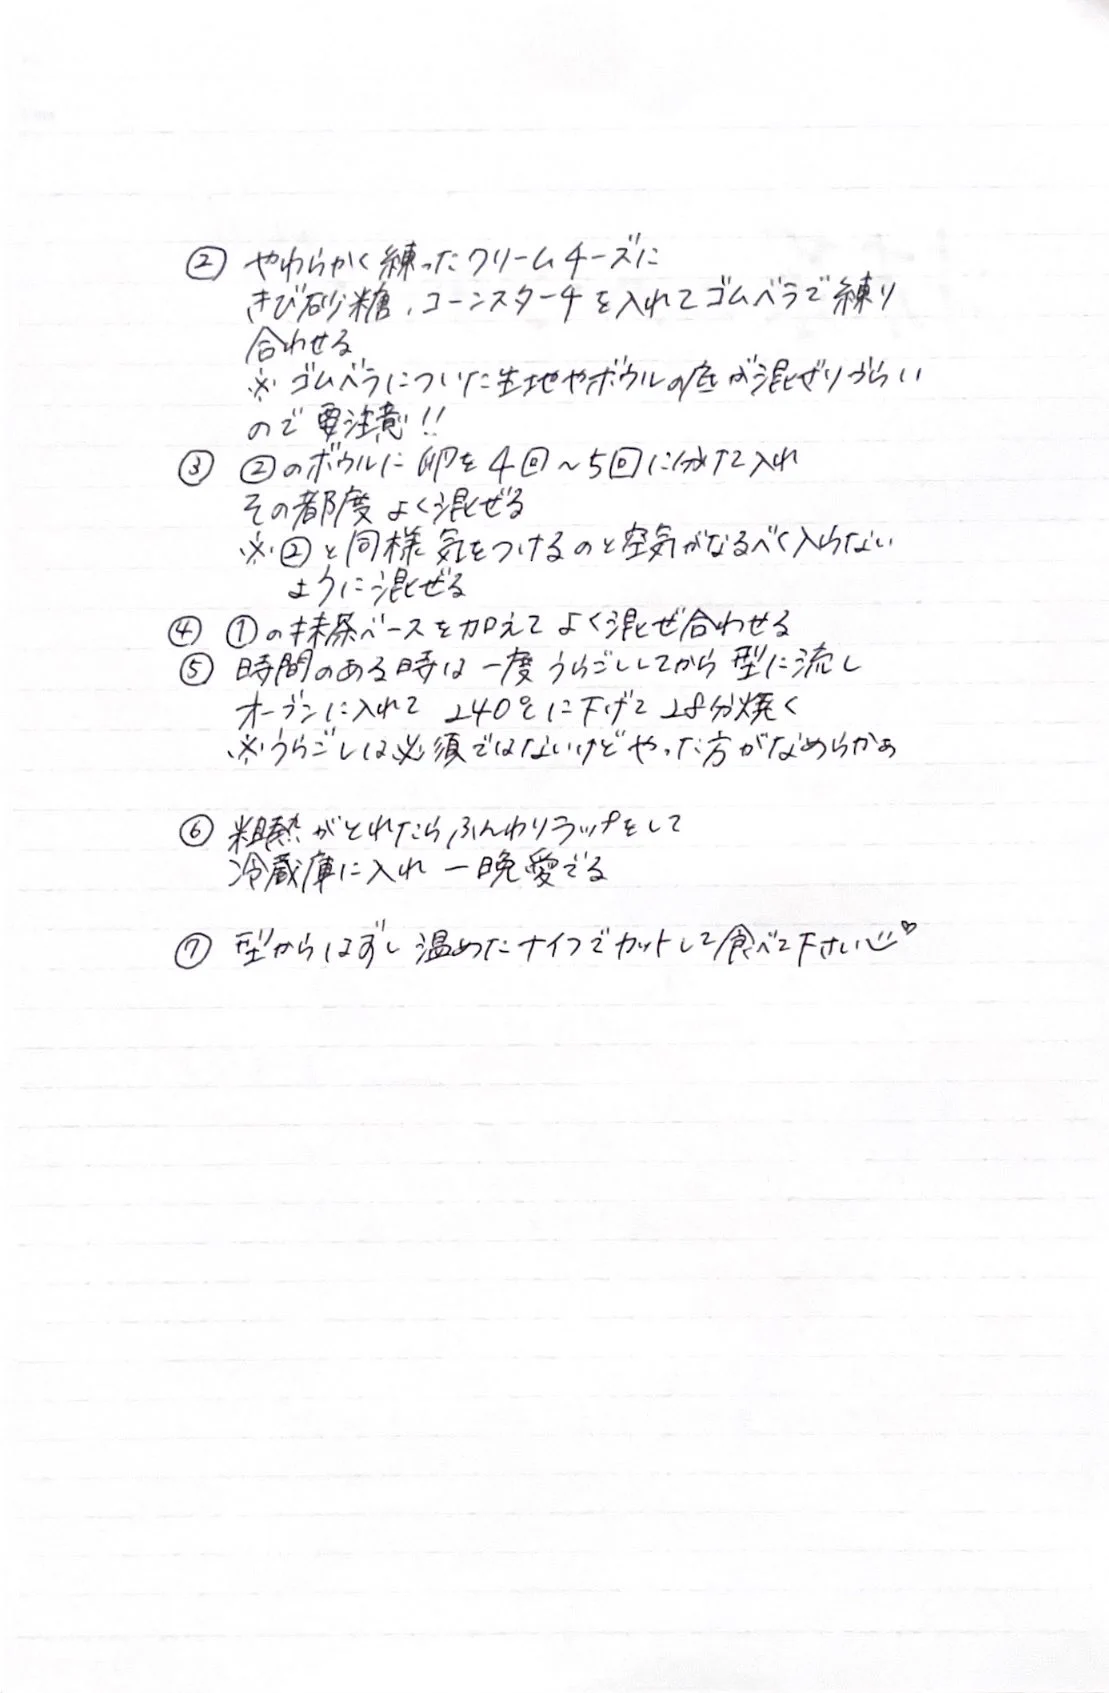 ② やわらかく練ったクリームチーズに
きび砂糖、コーンスターチを入れてゴムベラで練り
合わせる
※ ゴムベラについた生地やボウルの底が混ざりづらい
ので要注意!!
③ ②のボウルに卵を4回～5回に分けて入れ
その都度よく混ぜる
※②と同様気をつけるのと空気がなるべく入らない
ように混ぜる
④ ①の抹茶ベースを加えてよく混ぜ合わせる
⑤ 時間のある時は一度うらごししてから型に流し
オーブンに入れて240℃に下げて28分焼く
※うらごしは必須ではないけどやった方がなめらかぁ
⑥ 粗熱がとれたらふんわりラップをして
冷蔵庫に入れ一晩愛でる
⑦ 型からはずし温めたナイフでカットして食べて下さい